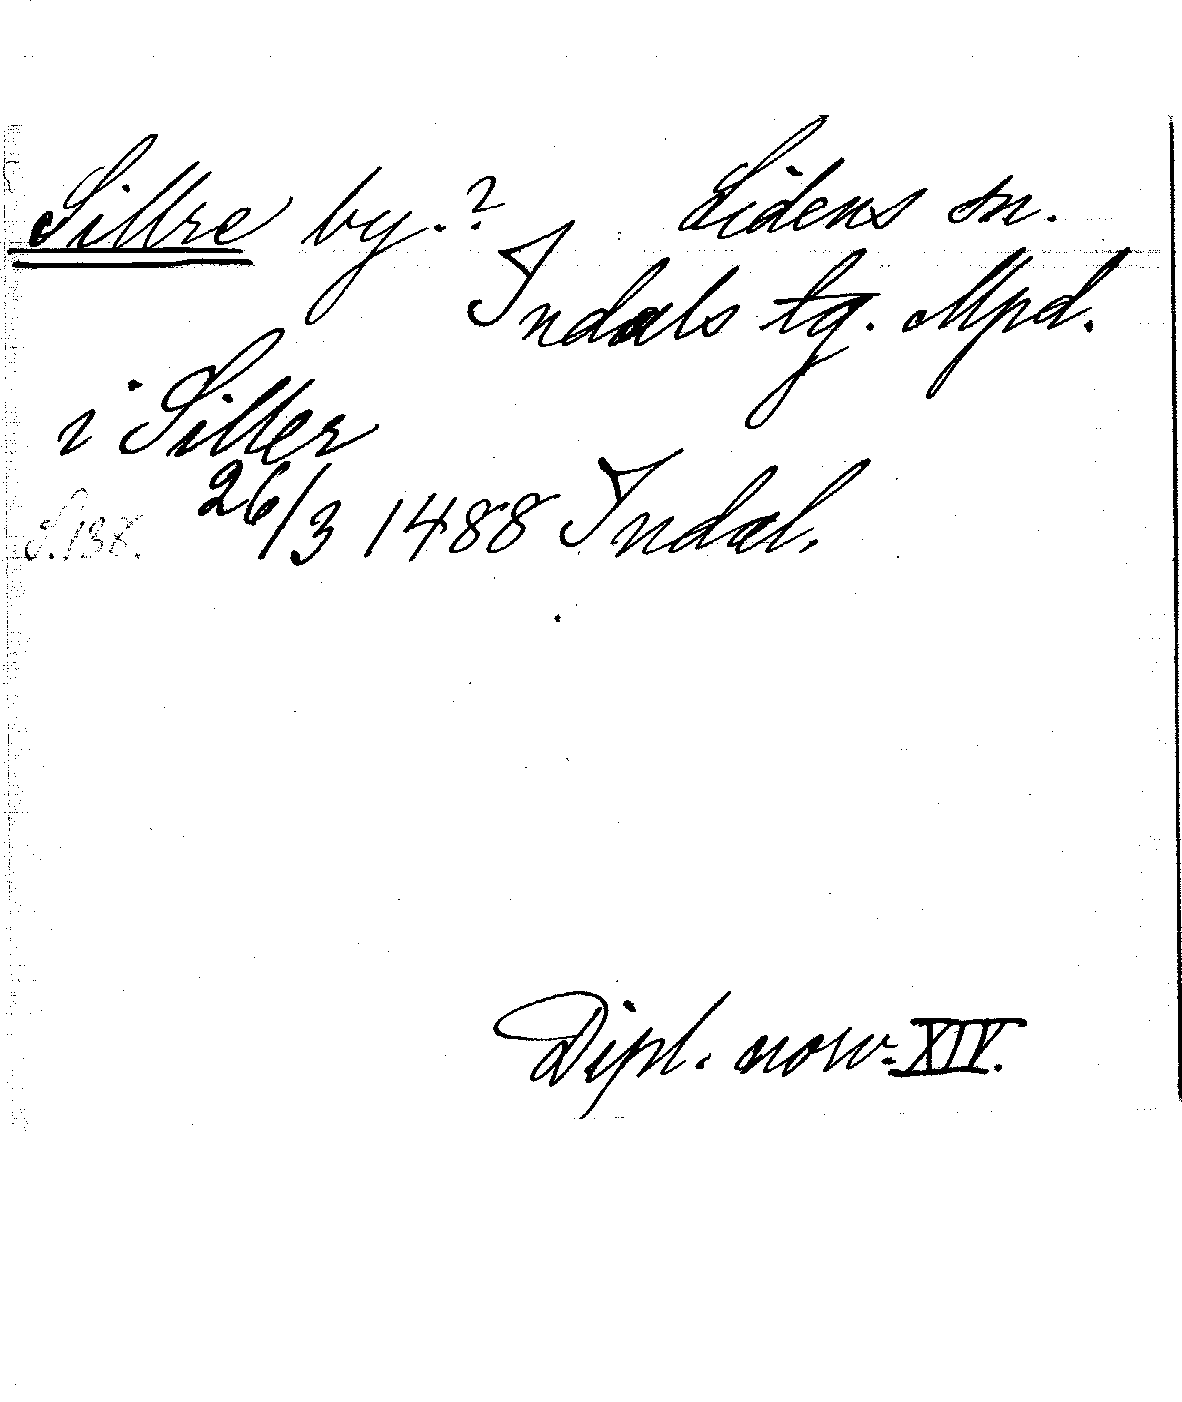 Sillre by.? Lidens sn.
Indals tg. Mpd.
i Siller
S. 138. 26/3 1488 Indal.
Dipl. norv. XIV.